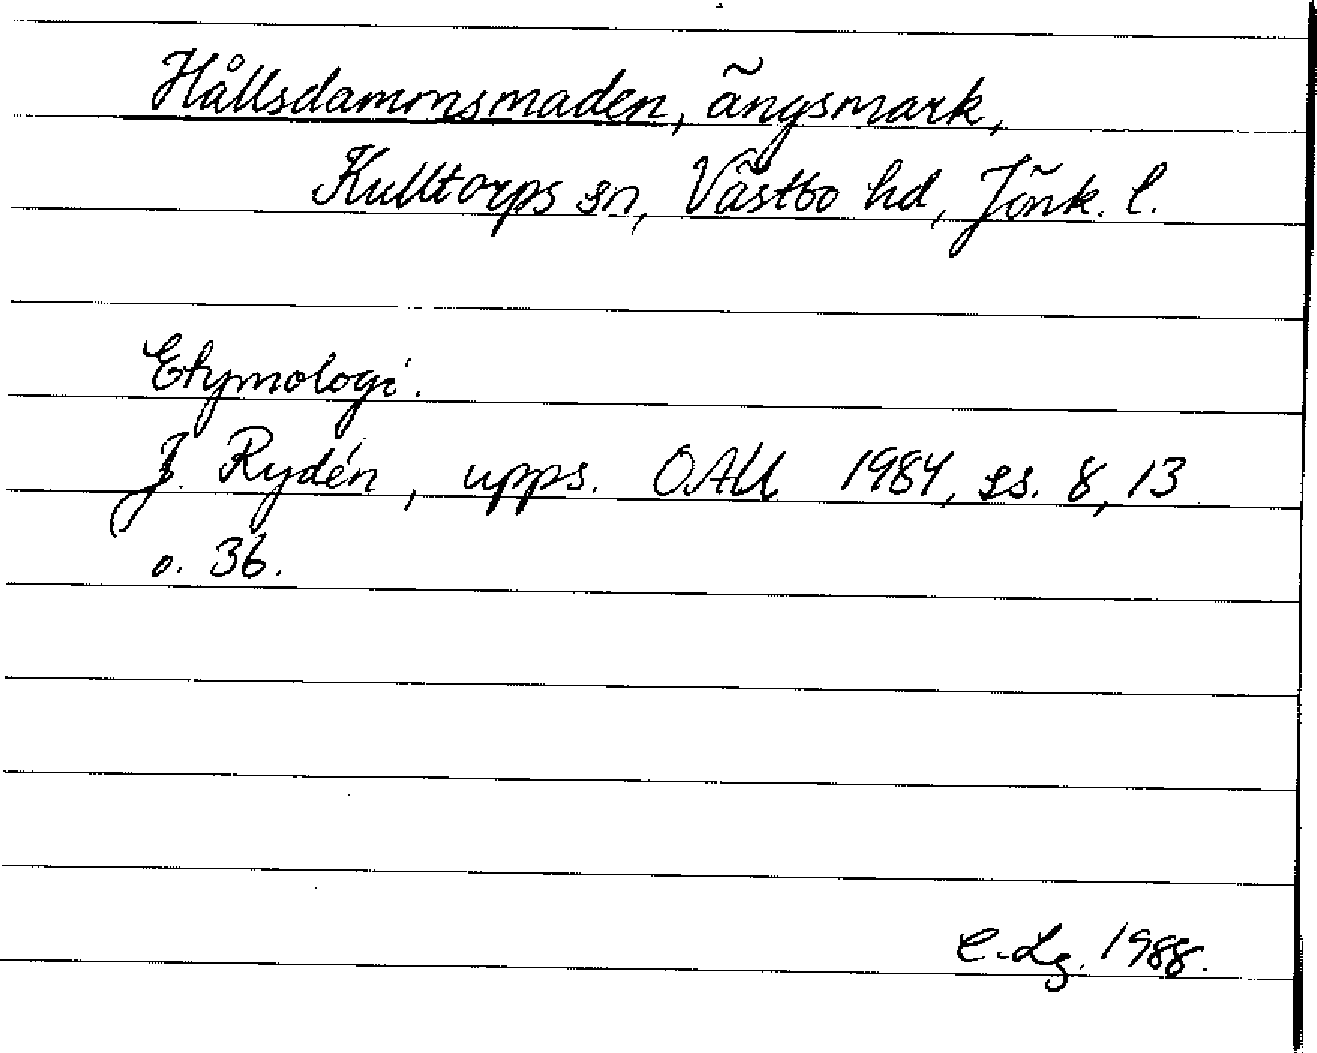 Hållsdammsmaden, ängsmark,
Kulltorps sn, Västbo hd, Jönk. l.
Etymologi.
J. Rydén, upps. OAU 1984, ss. 8, 13
o. 36.
C. Lg. 1988.